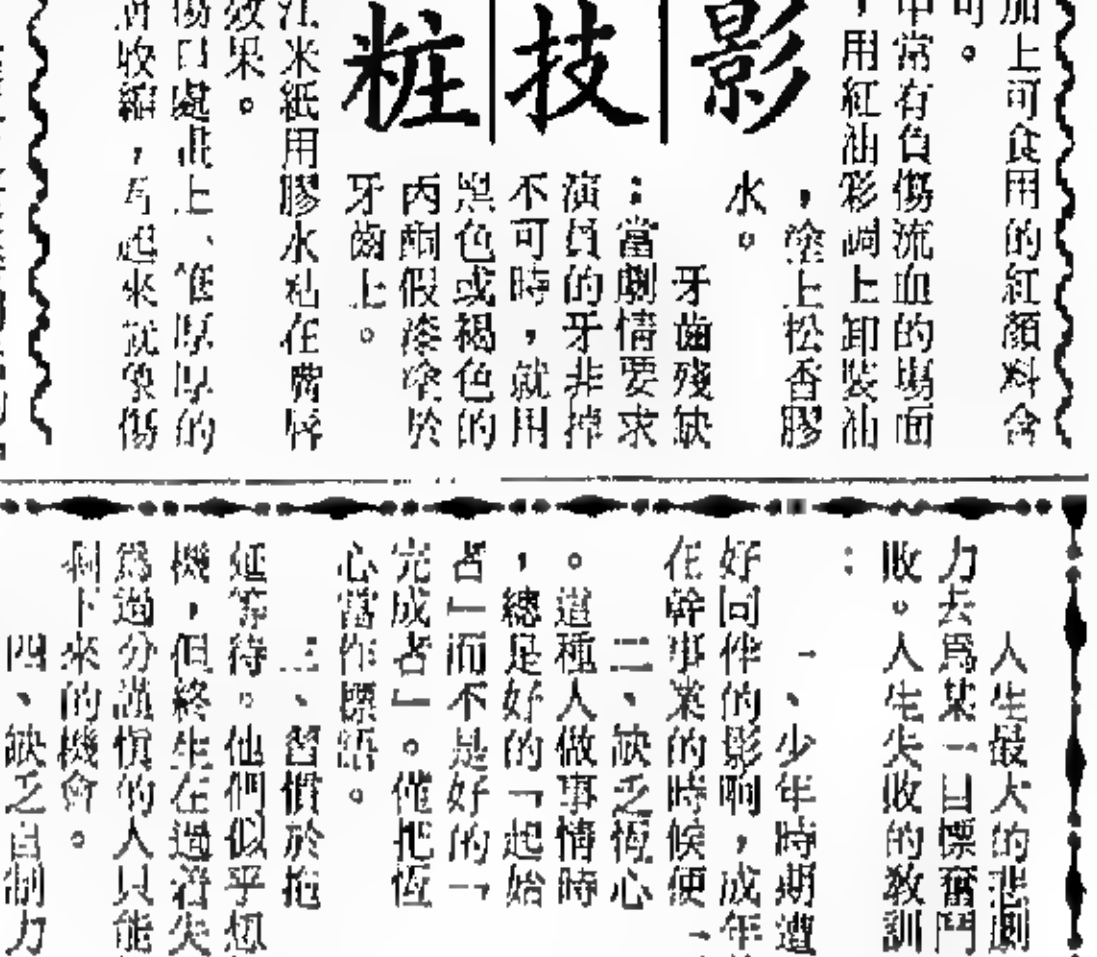 影技粧
加上可食用的紅顏料含
可。
中常有負傷流血的場面
，用紅油彩調上卸裝油
，塗上松香膠
水。
牙齒殘缺
：當劇情要求
演員的牙非掉
不可時，就用
黑色或褐色的
丙酮假漆塗於
牙齒上。
江米紙用膠水粘在嘴唇
效果。
傷口處畫上、堆厚厚的
收縮，看起來就象傷
人生最大的悲劇
力去爲某一目標奮鬥
敗。人生失敗的教訓
：
一、少年時期遭
好同伴的影响，成年
在幹事業的時候便
二、缺乏恆心
。這種人做事情時
，總是好的「起始
者」而不是好的「
完成者」。僅把恆
心當作標語。
三、習慣於拖
延等待。他們似乎想
機，但終生在過着失
爲過分謹慎的人只能
剩下來的機會。
四、缺乏自制力